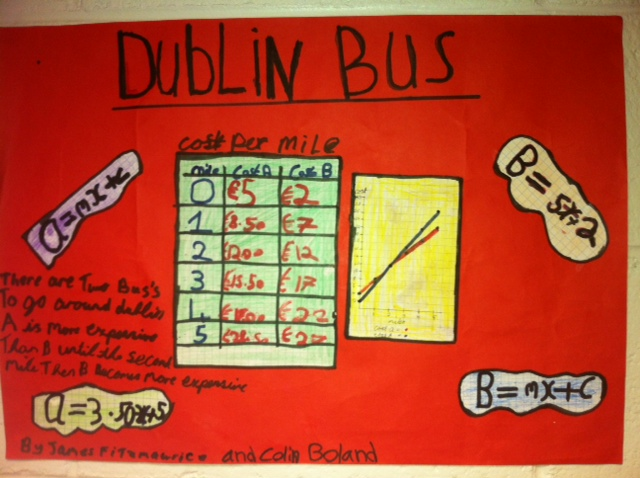 DUBLIN BUS
cost per mile
mile Cost A Cost B
0 €5 €2
1 €8.50 €7
2 €12.00 €12
3 €15.50 €17
4 €22
5 €27
a=mx+c
B=5x+2
There are Two Bus's
To go around dublin
A is More expensive
Than B until the second
mile Then B Becomes More expensive
a=3.50x+5
B=mx+c
By James Fitzmaurice and Colin Boland